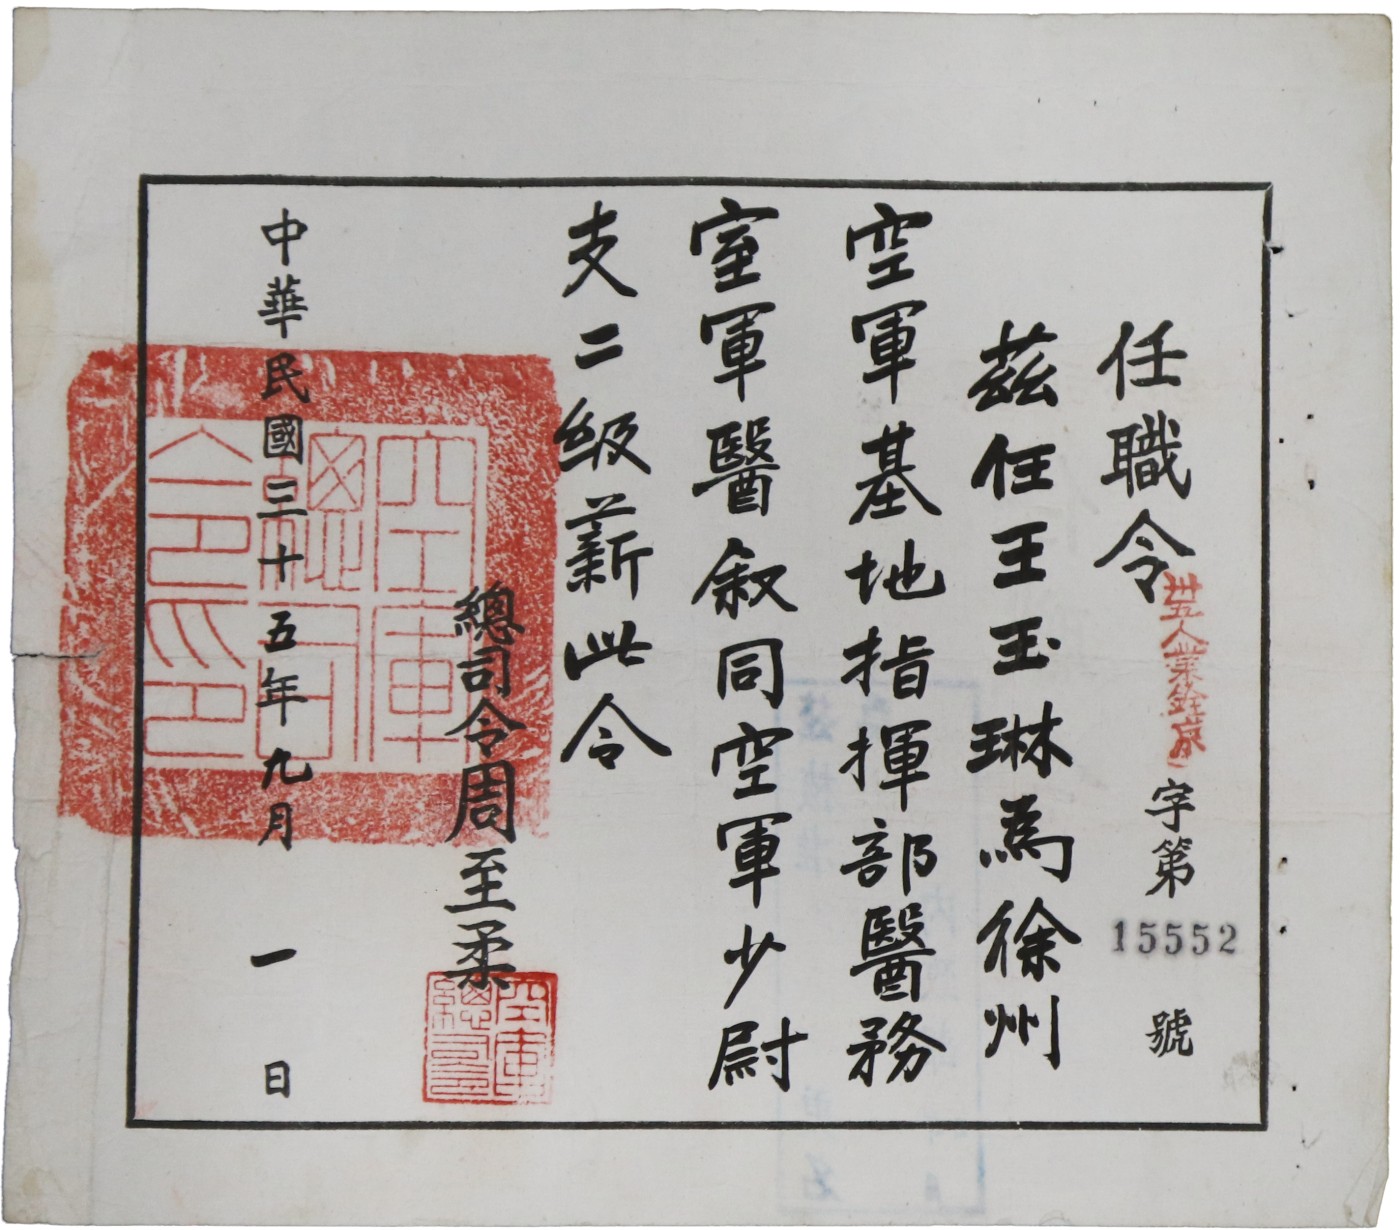 任職令
卅五人業銓字第15552號
茲任王玉琳為徐州
空軍基地指揮部醫務
室軍醫敘同空軍少尉
支二級薪此令
總司令周至柔
空軍總司令印
中華民國三十五年九月一日